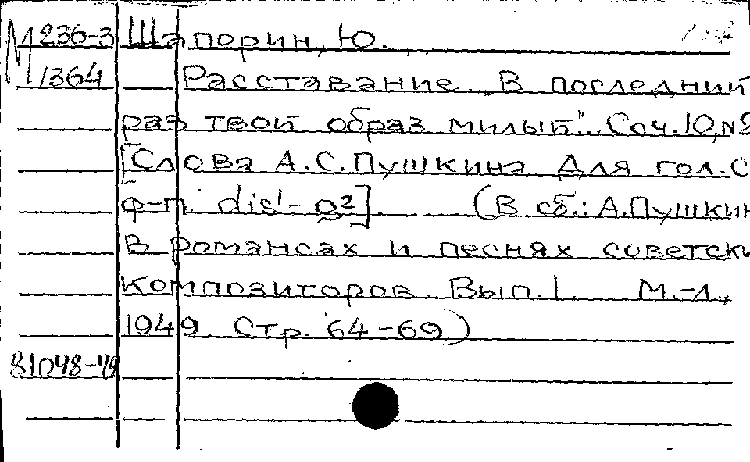 М 236-3 Шапорин, Ю.
1364 Расставание. В последний
раз твой образ милый". Соч. 10, №
[Слова А.С.Пушкина Для гол. с
ф-п. dis¹-a²]. (В сб.: А.Пушкин
в романсах и песнях советски
композиторов. Вып. 1. М.-Л.,
1949. Стр. 64-69)
81048-49